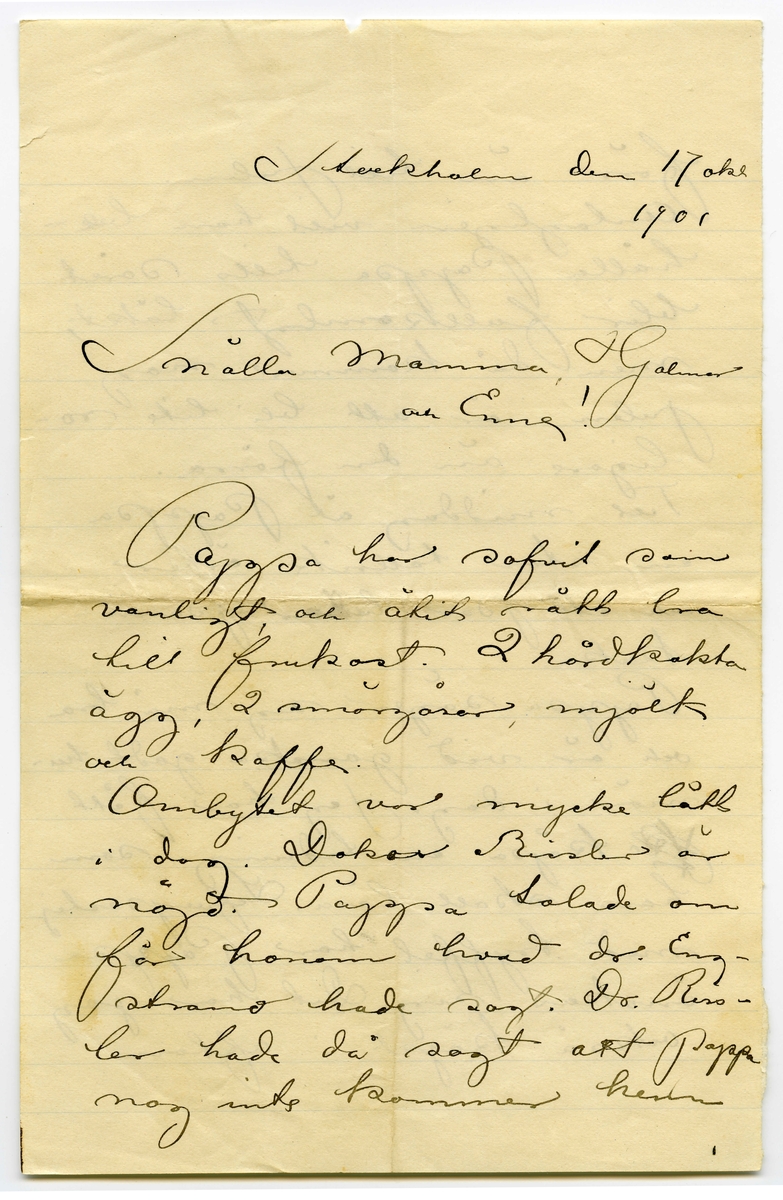 Stockholm den 17 okt
1901
Snälla Mamma, Hjalmar
och Enna!
Pappa har sofvit som
vanligt, och ätit rätt bra
till frukost. 2 hårdkokta
ägg, 2 smörgåsar, mjölk
och kaffe.
Ombytet var mycke lätt
i dag. Doktor Rissler är
nöjd. Pappa talade om
för honom hvad dr. Eng-
strand hade sagt. Dr. Riss-
ler hade då sagt att Pappa
nog inte kommer hem